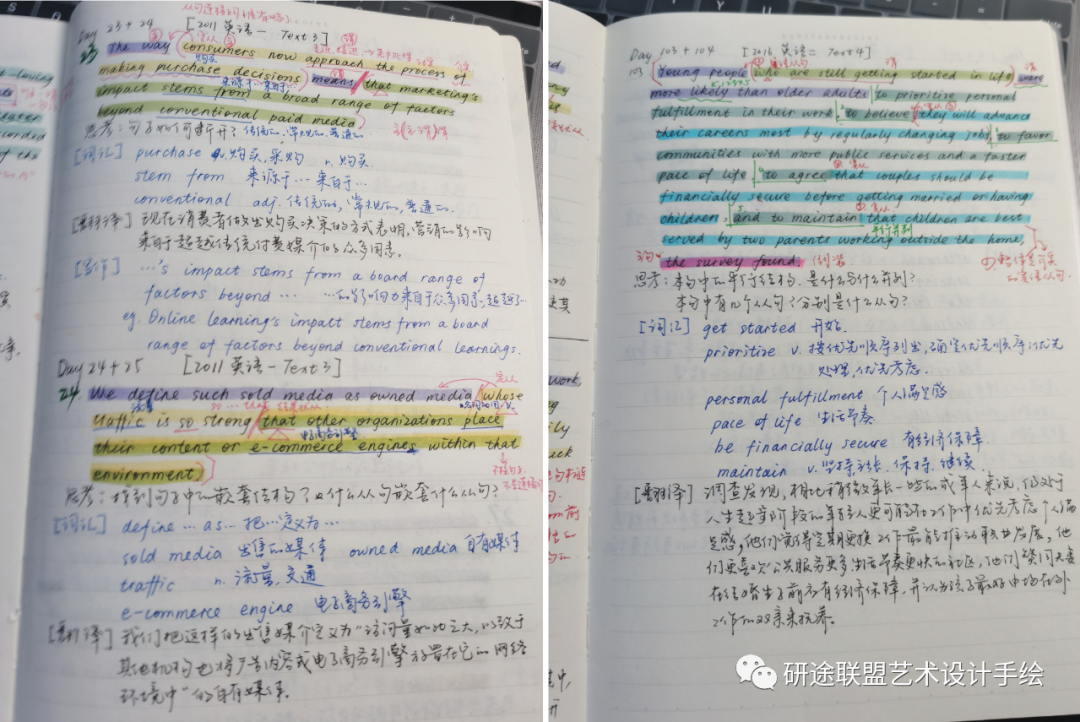 从句连接词
Day 23+24 [2011 英语一 Text 3]
23 The way consumers now approach the process of
购买
making purchase decisions means that marketing's
impact stems from a broad range of factors
beyond conventional paid media.
思考：句子如何断开？传统的、常规的、普通的
[词汇] purchase v.购买，采购 n.购买
stem from 来源于… 来自于…
conventional adj. 传统的，常规的，普通的.
[翻译] 现在消费者做出购买决策的方式表明，营销的影响
来自于超越传统付费媒介的众多因素。
[写作] …'s impact stems from a board range of
factors beyond … …的影响力来自于众多因素，超越…
eg. Online learning's impact stems from a board
range of factors beyond conventional learnings.
Day 24+25 [2011 英语一 Text 3]
定从
24 We define such sold media as owned media whose
traffic is so strong that other organizations place
电子商务引擎
their content or e-commerce engines within that
environment.
思考：找到句子中的嵌套结构？由什么从句嵌套什么从句？
[词汇] define … as… 把…定义为…
sold media 出售的媒体 owned media 自有媒体
traffic n. 流量，交通
e-commerce engine 电子商务引擎
[翻译] 我们把这样的出售媒介定义为“访问量如此之大，以致于
其他机构也将广告内容或电子商务引擎放置在它的网络
环境中”的自有媒体。
Day 103+104 [2016 英语二 Text 4]
103 Young people who are still getting started in life were
more likely than older adults to prioritize personal
fulfillment in their work, to believe they will advance
their careers most by regularly changing jobs, to favor
communities with more public services and a faster
pace of life, to agree that couples should be
financially secure before getting married or having
children, and to maintain that children are best
served by two parents working outside the home,
the survey found. 倒装
思考：本句中的平行结构，是什么与什么并列？
本句中有几个从句？分别是什么从句？
[词汇] get started 开始.
prioritize v. 按优先顺序列出，确定优先顺序；优先
处理，优先考虑.
personal fulfillment 个人满足感
pace of life 生活节奏
be financially secure 有经济保障.
maintain v. 坚持主张. 保持. 继续
[翻译] 调查发现，相比稍微年长一些的成年人来说，仍处于
人生起步阶段的年轻人更可能在工作中优先考虑个人满
足感，他们觉得定期更换工作最能推动职业发展，他
们更喜欢公共服务更多生活节奏更快的社区，他们赞同夫妻
在结婚生子前应有经济保障，并认为孩子最好由均在外
工作的双亲来抚养。
研途联盟艺术设计手绘